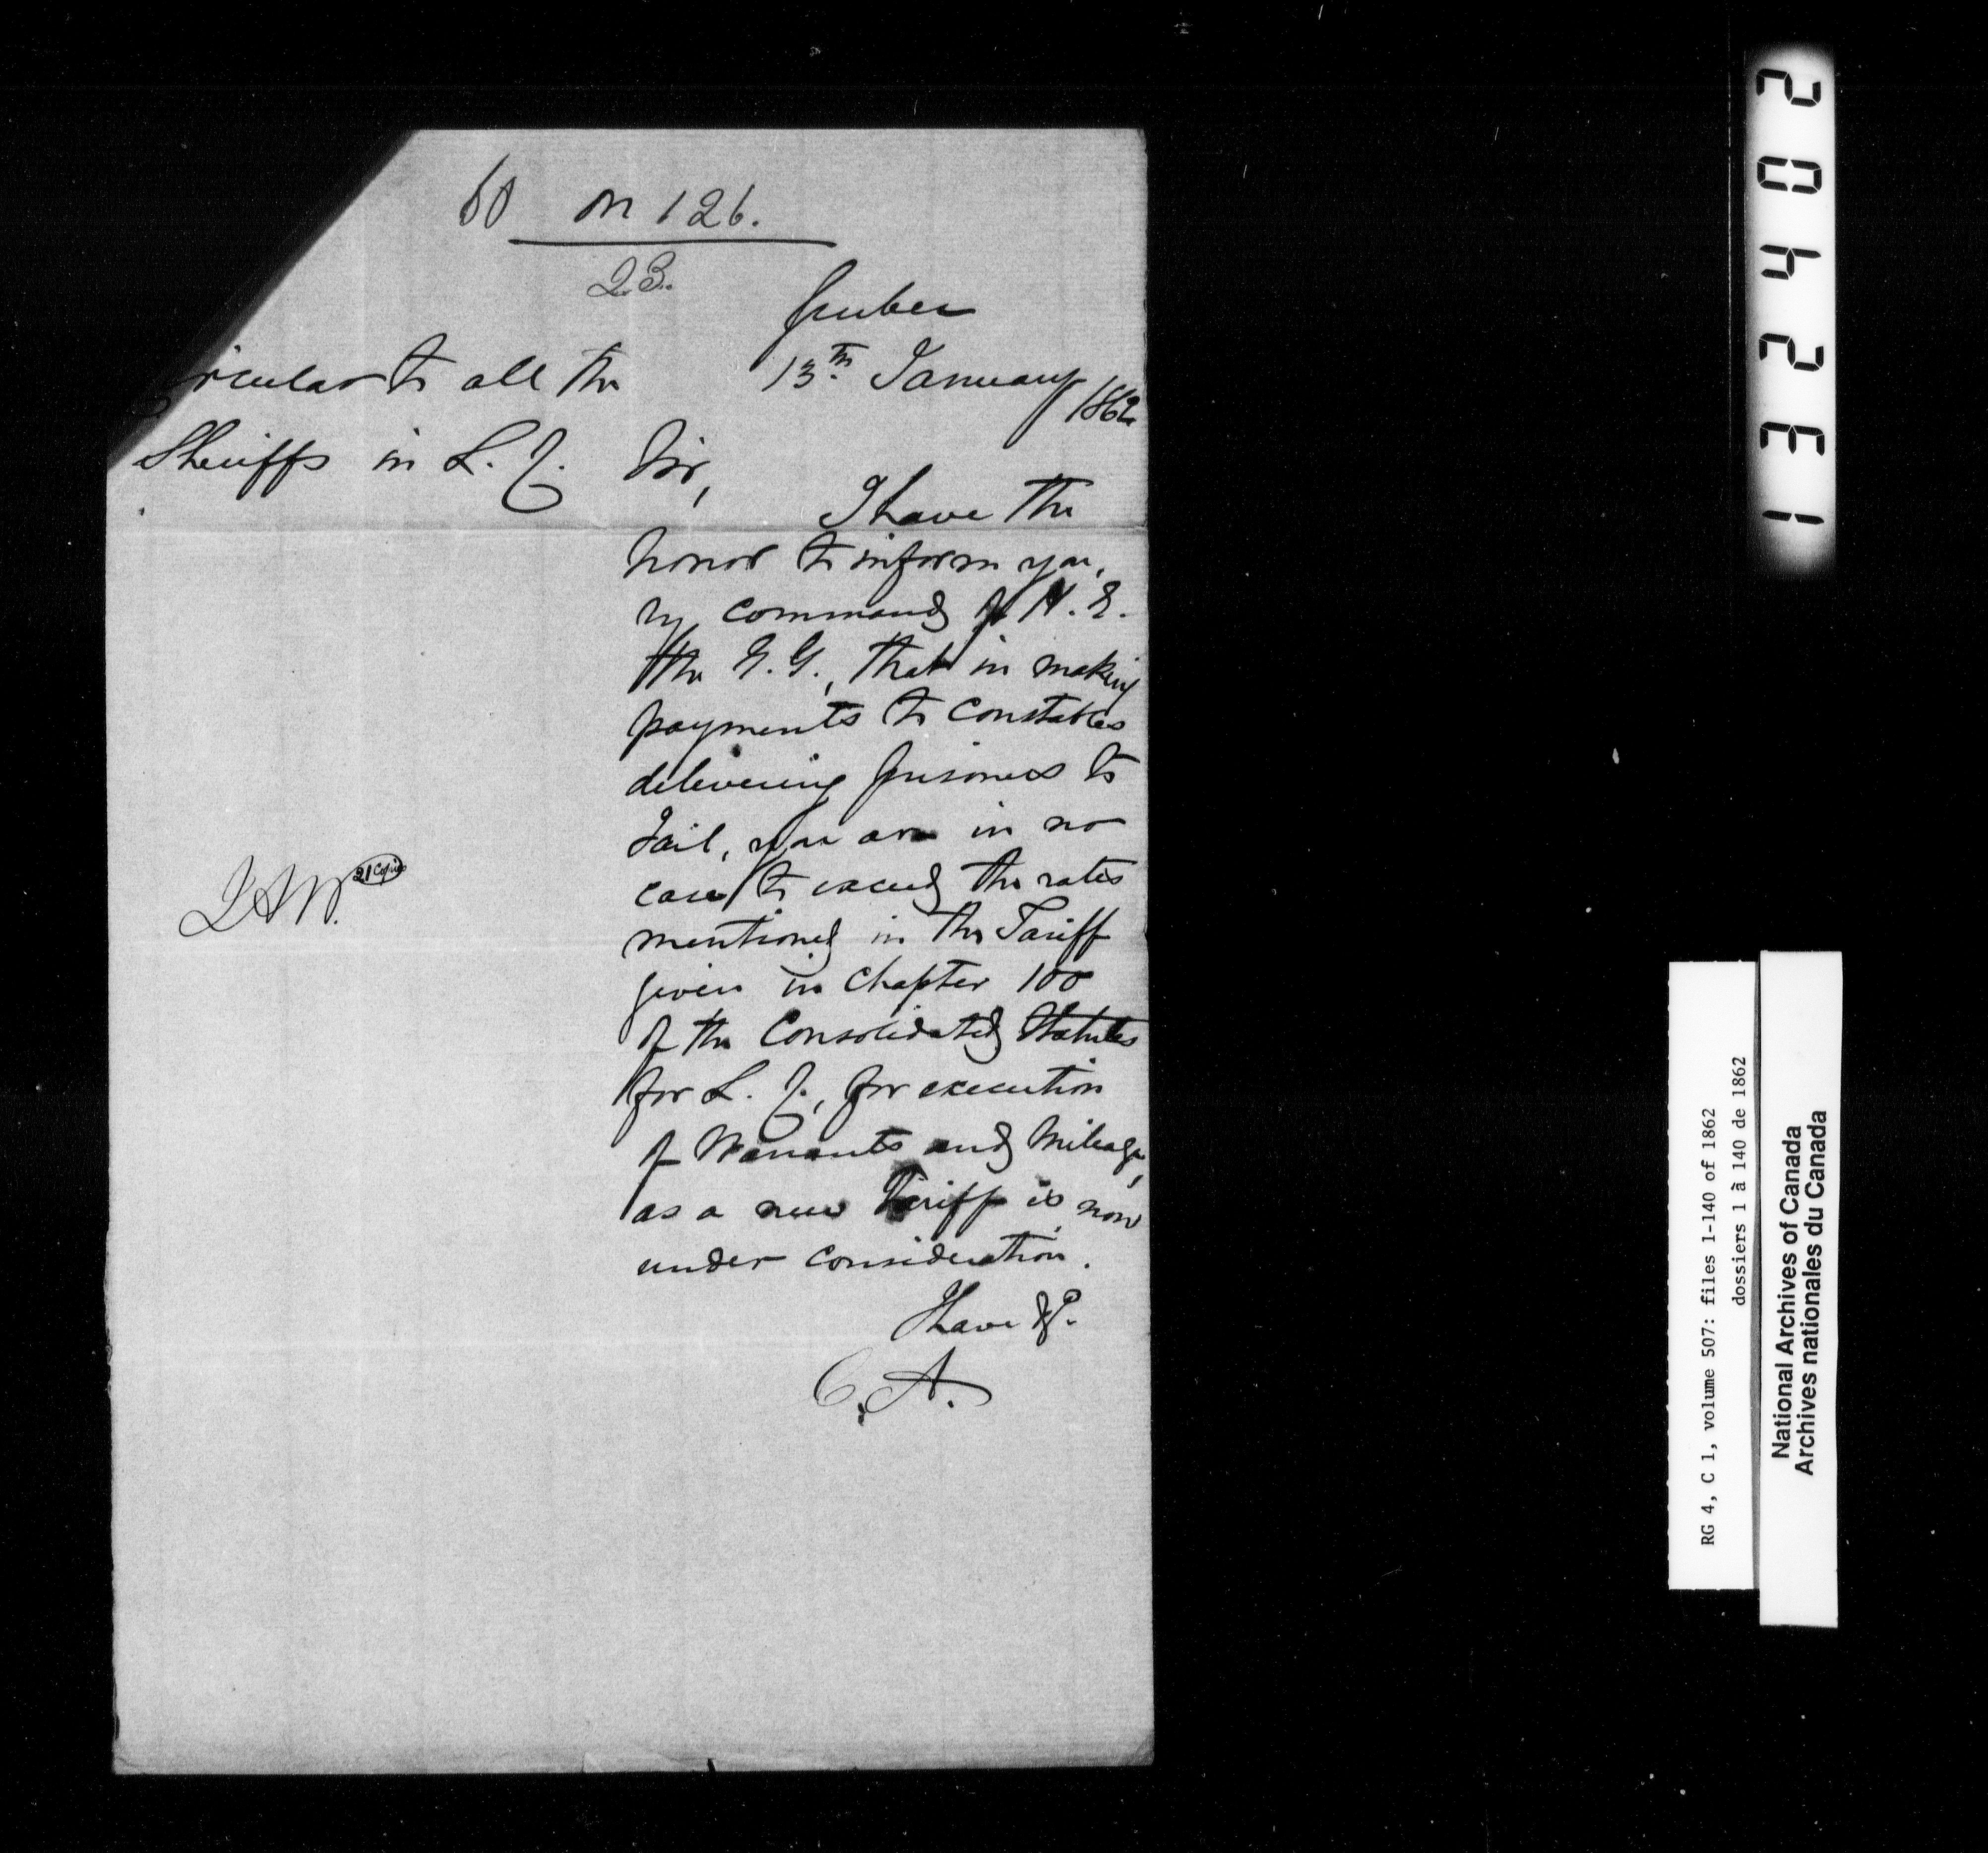 60 on 126.
23.
Quebec
13th January 1862
Circular to all the
Sheriffs in L. C.
Sir,
I have the
honor to inform you,
by command of H. E.
the G. G., that in making
payments to Constables
delivering prisoners to
Jail, you are in no
case to exceed the rates
mentioned in the Tariff
given in Chapter 100
of the Consolidated Statutes
for L. C., for execution
of Warrants and Mileage,
as a new Tariff is now
under consideration.
I have &c.
C. A.
21 Copies
204231
RG 4, C 1, volume 507: files 1-140 of 1862
dossiers 1 à 140 de 1862
National Archives of Canada
Archives nationales du Canada